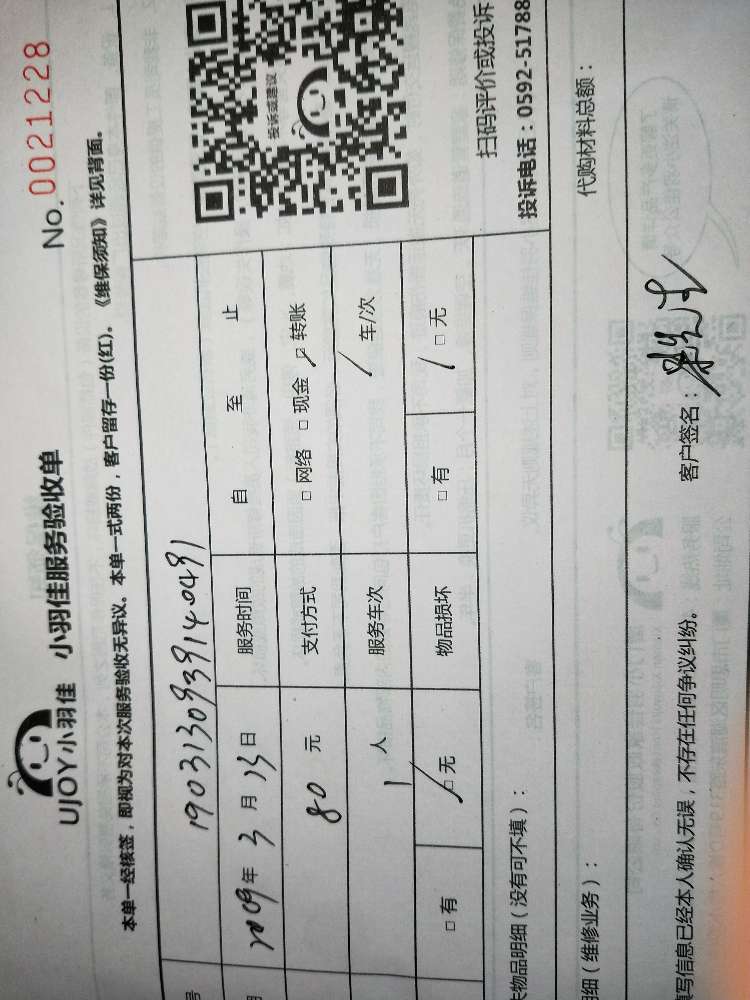 UJOY小羽佳 小羽佳服务验收单
No. 0021228
本单一经核签，即视为对本次服务验收无异议。本单一式两份，客户留存一份(红)。《维保须知》详见背面。
号 1903130939140491
2009年3月13日 服务时间 自 至 止
80 元 支付方式 □网络 □现金 □转账
1 人 服务车次 / 车/次
□有 □无 物品损坏 □有 □无
投诉或建议
扫码评价或投诉
投诉电话：0592-51788
物品明细（没有可不填）：
明细（维修业务）：
代购材料总额：
填写信息已经本人确认无误，不存在任何争议纠纷。
客户签名：